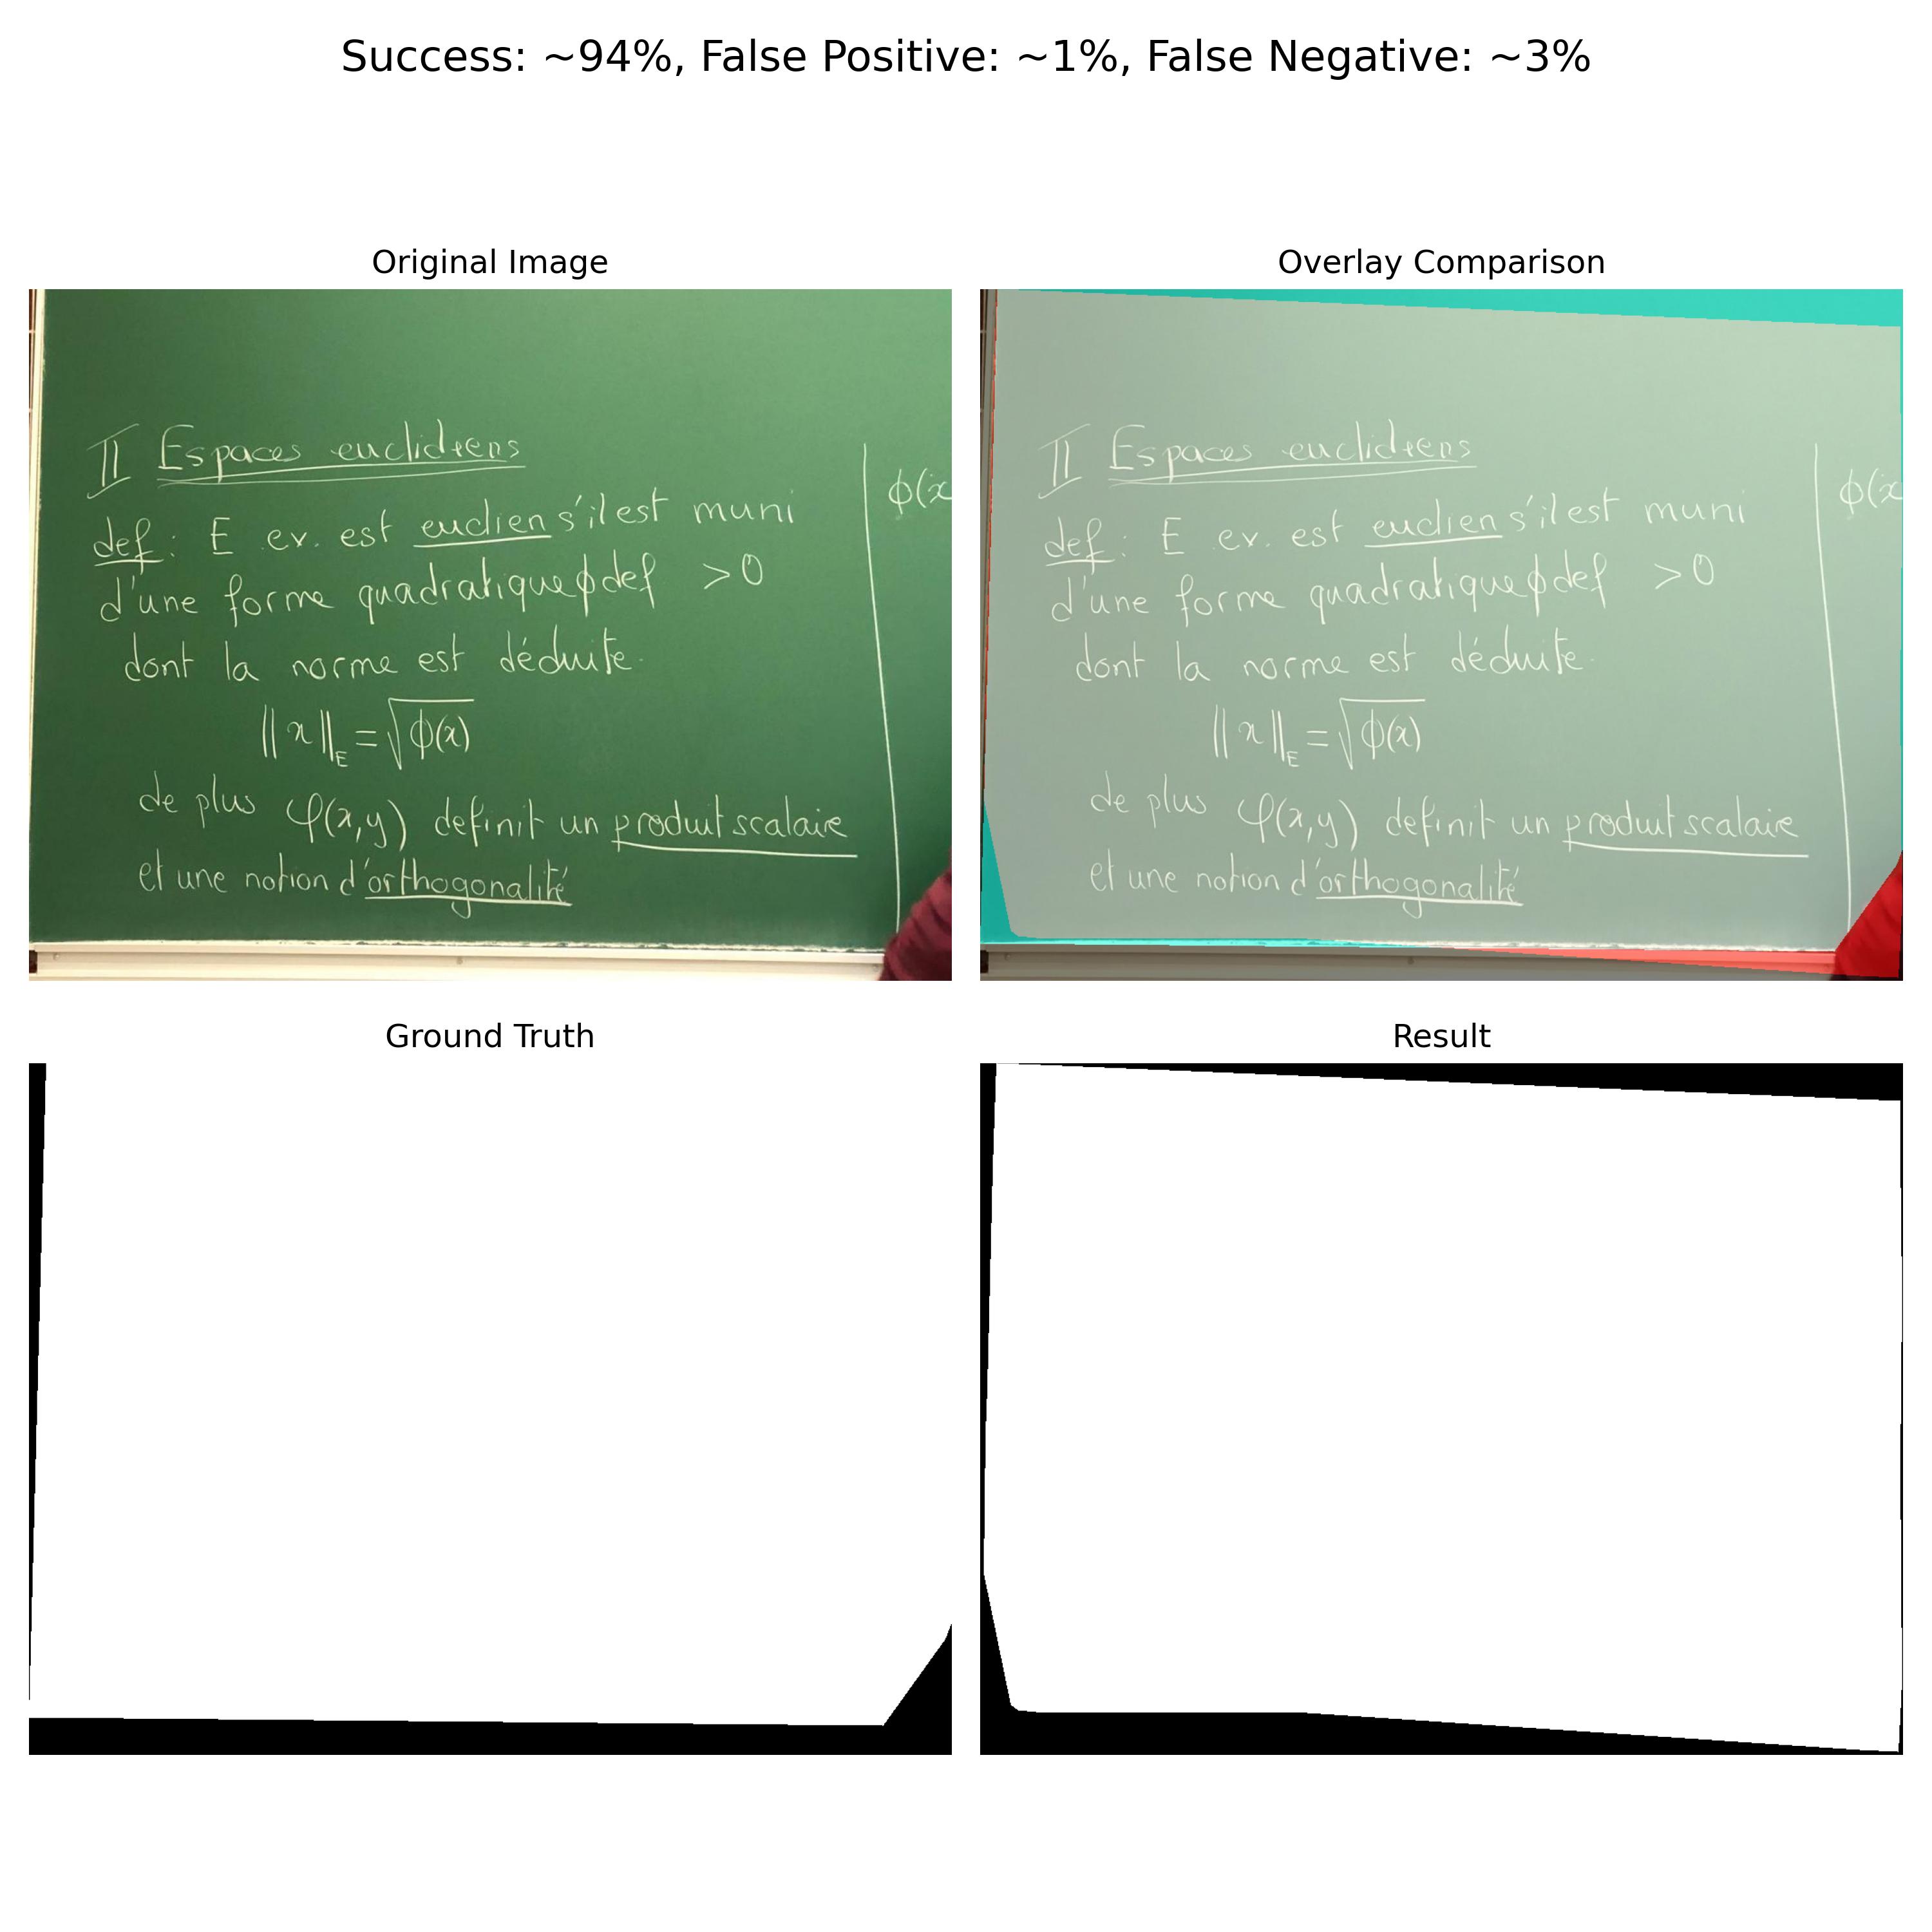 Success: ~94%, False Positive: ~1%, False Negative: ~3%
Original Image
II Espaces euclidiens
def: E ev. est euclien s'il est muni
d'une forme quadratique ϕ def >0
dont la norme est déduite.
||x||_E = √ϕ(x)
de plus φ(x,y) definit un produit scalaire
et une notion d'orthogonalité
ϕ(x
Overlay Comparison
II Espaces euclidiens
def: E ev. est euclien s'il est muni
d'une forme quadratique ϕ def >0
dont la norme est déduite.
||x||_E = √ϕ(x)
de plus φ(x,y) definit un produit scalaire
et une notion d'orthogonalité
ϕ(x
Ground Truth
Result